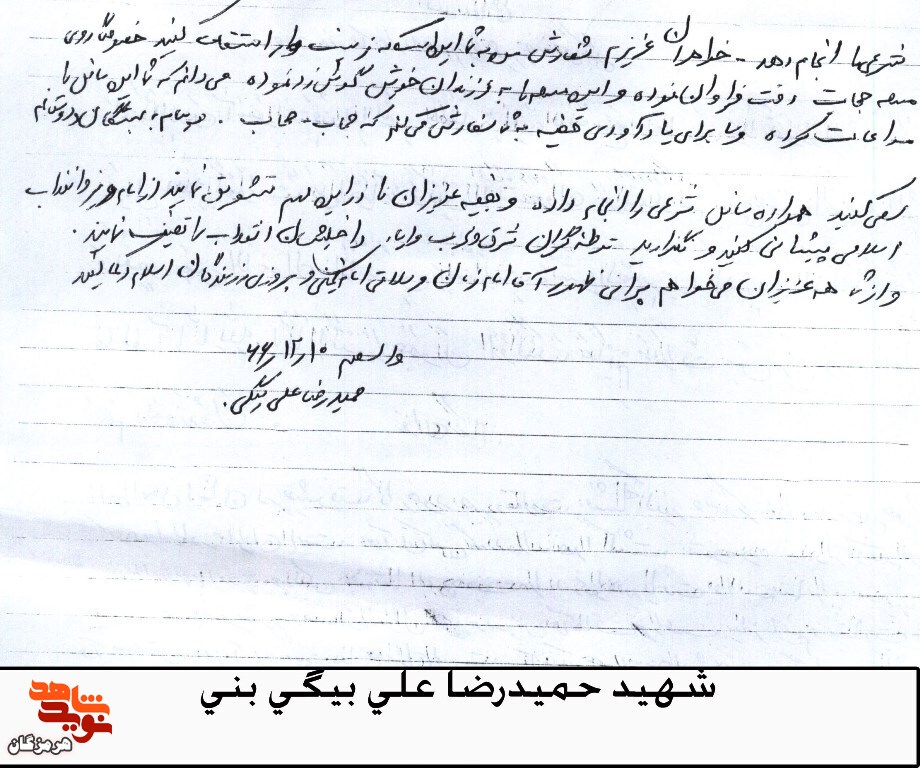 شرعی ما انجام دهد - خواهران عزیزم سفارش من به شما این است که زینب وار استقامت کنید خصوصاً روی
مسئله حجاب دقت فراوان نموده و این مسئله را به فرزندان خویش گوش زد نموده می دانم که شما این مسائل را
مراعات کرده و ما برای یادآوری قضیه به شما سفارش می کنم که حجاب - حجاب
سعی کنید همواره مسائل شرعی را انجام داده و بقیه عزیزان را در این مهم تشویق نمایند از امام و انقلاب
اسلامی پشتیبانی کنند و نگذارید توطئه گران شرق و غرب و ایادی داخلیشان انقلاب را تضعیف نمایند .
و از شما همه عزیزان می خواهم برای ظهور آقا امام زمان و سلامتی امام خمینی و پیروزی رزمندگان اسلام دعا کنید
والسلام ۶۶/۱۲/۱۰
حمیدرضا علی بیگی .
شهيد حميدرضا علي بيگي بني
نوید شاهد
هرمزگان